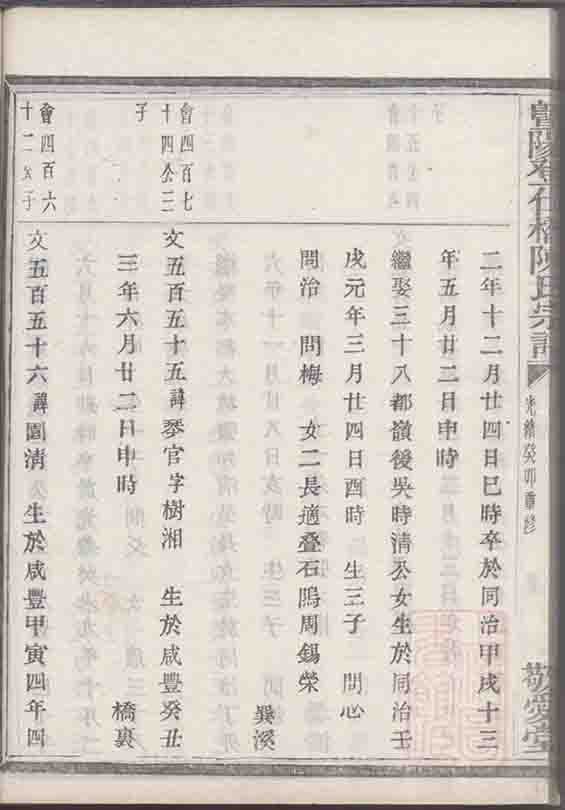 陽仁橋陳氏宗譜
光緒癸卯重修
敬愛堂
二年十二月廿四日巳時卒於同治甲戌十三
年五月廿二日申時
繼娶三十八都嶺後吳時清公女生於同治壬
戌元年三月廿四日酉時　生三子　問心
問治　問梅　女二長適叠石隖周錫榮
巽溪
會四百七
十四公三
子
文五百五十五諱琴官字樹湘　生於咸豐癸丑
三年六月廿二日申時
橋裏
會四百六
十二公子
文五百五十六諱園清　生於咸豐甲寅四年四